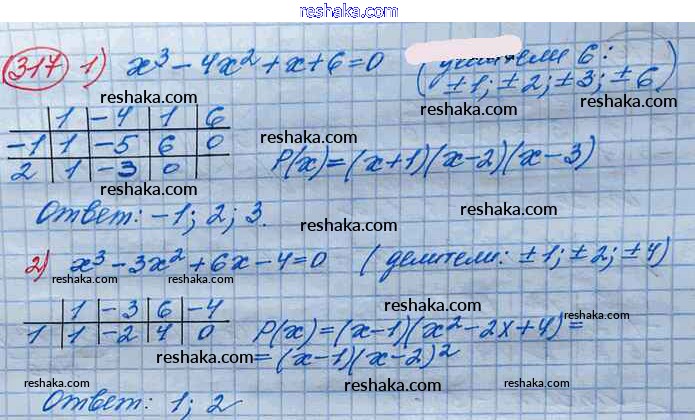 reshaka.com
317 1) x³ - 4x² + x + 6 = 0 (делители 6:
± 1; ± 2; ± 3; ± 6)
reshaka.com reshaka.com
1 | -4 | 1 | 6
-1 | 1 | -5 | 6 | 0 reshaka.com
2 | 1 | -3 | 0 P(x) = (x+1)(x-2)(x-3)
reshaka.com
Ответ: -1; 2; 3.
reshaka.com reshaka.com
2) x³ - 3x² + 6x - 4 = 0 (делители: ± 1; ± 2; ± 4)
reshaka.com reshaka.com reshaka.com
1 | -3 | 6 | -4 reshaka.com
1 | 1 | -2 | 4 | 0 P(x) = (x-1)(x² - 2x + 4) =
reshaka.com
= (x-1)(x-2)²
reshaka.com reshaka.com
reshaka.com reshaka.com
Ответ: 1; 2
reshaka.com